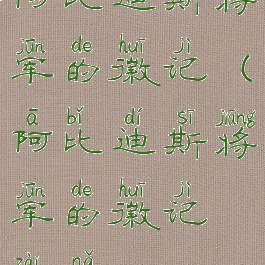 阿比迪斯将
jūn de huī jì
军的徽记（
ā bǐ dí sī jiāng
阿比迪斯将
jūn de huī jì
军的徽记
zài nǎ